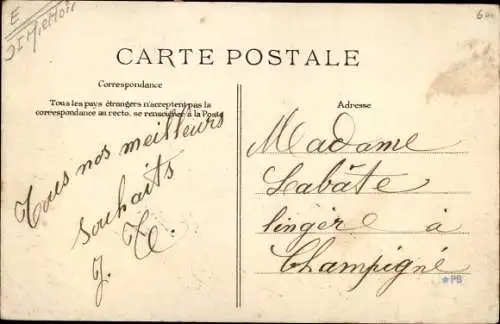 E
CARTE POSTALE
Correspondance
Tous les pays étrangers n'acceptent pas la
correspondance au recto. se renseigner à la Poste
Tous nos meilleurs
souhaits
Adresse
Madame
Labâte
lingère à
Champigné
★PB